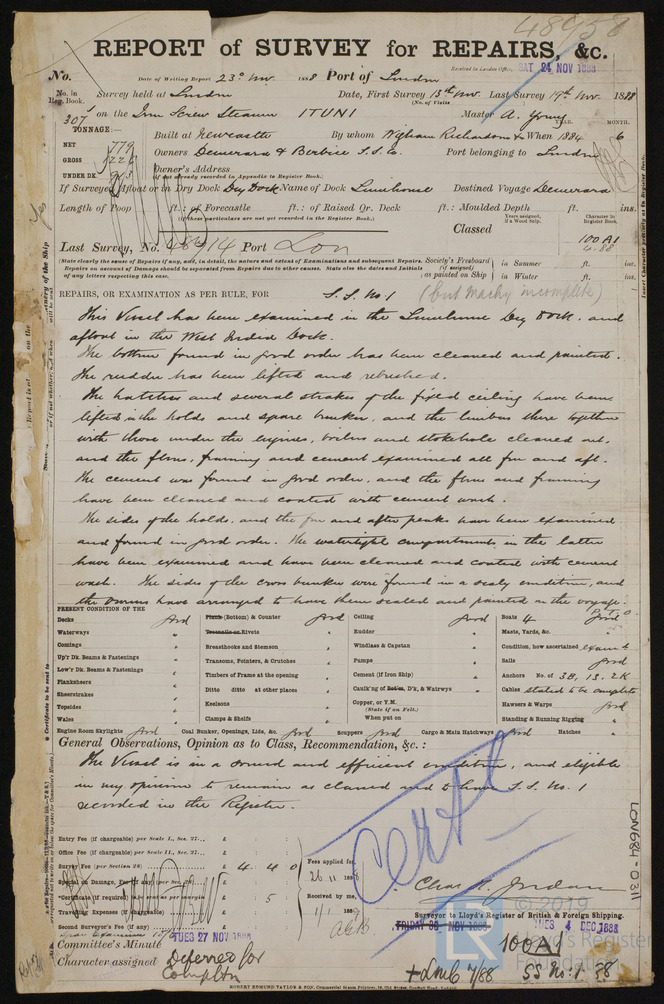 48958
REPORT of SURVEY for REPAIRS, &c.
Received in London Office, SAT 24 NOV 1888
No. Date of Writing Report 23rd Nov. 1888 Port of London
No. in Reg. Book. Survey held at London Date, First Survey 13th Nov. Last Survey 19th Nov. 1888
(No. of Visits
307 on the Iron Screw Steamer ITUNI Master A. Young
TONNAGE:— YEAR. MONTH.
Built at Newcastle By whom Wigham Richardson & When 1884 6
NET 779
GROSS Owners Demerara & Berbice S.S. Co. Port belonging to London
UNDER DK. Owner's Address
(if not already recorded in Appendix to Register Book.)
If Surveyed Afloat or in Dry Dock Dry Dock Name of Dock Limehouse Destined Voyage Demerara
Length of Poop ft.: of Forecastle ft.: of Raised Qr. Deck ft.: Moulded Depth ft. ins.
(if these particulars are not yet recorded in the Register Book.)
Years assigned, if a Wood Ship.
Character in Register Book.
Classed 100 A1
6.88
Last Survey, No. 48414 Port Lon
(State clearly the cause of Repairs if any, and, in detail, the nature and extent of Examinations and subsequent Repairs.
Repairs on account of Damage should be separated from Repairs due to other causes. State also the dates and Initials of any letters respecting this case.
Society's Freeboard (if assigned) as painted on Ship in Summer ft. ins.
in Winter ft. ins.
REPAIRS, OR EXAMINATION AS PER RULE, FOR S.S. No 1 (but machy incomplete)
This Vessel has been examined in the Limehouse Dry Dock, and
afloat in the West India Dock.
The bottom found in good order has been cleaned and painted.
The rudder has been lifted and rebushed.
The hatches and several strakes of the fixed ceiling have been
lifted in the holds and spare bunker, and the limbers there together
with those under the engines, boilers and stokehole cleaned out,
and the floors, framing and cement examined all fore and aft.
The cement was found in good order, and the floors and framing
have been cleaned and coated with cement wash.
The sides of the holds, and the fore and after peaks have been examined
and found in good order. The watertight compartments in the latter
have been examined and have been cleaned and coated with cement
wash. The sides of the cross bunker were found in a scaly condition, and
the owners have arranged to have them scaled and painted on the voyage.
P.T.O
PRESENT CONDITION OF THE
Decks Good
Waterways "
Comings "
Up'r Dk. Beams & Fastenings "
Low'r Dk. Beams & Fastenings "
Planksheers "
Sheerstrakes "
Topsides "
Wales "
Engine Room Skylights Good
Plank (Bottom) & Counter Good
Treenails or Rivets "
Breasthooks and Stemson "
Transoms, Pointers, & Crutches "
Timbers of Frame at the opening
Ditto ditto at other places "
Keelsons "
Clamps & Shelfs "
Coal Bunker, Openings, Lids, &c. Good
Ceiling Good
Rudder "
Windlass & Capstan "
Pumps "
Cement (if Iron Ship) "
Caulk'ng of Bottm, D'k, & Watrwys "
Copper, or Y.M.
(State if on Felt.)
When put on
Scuppers Good Cargo & Main Hatchways Good
Boats 4 Good
Masts, Yards, &c. "
Condition, how ascertained
Sails Good
Anchors No. of 3B, 1S, 2K
Cables stated to be complete
Hawsers & Warps Good
Standing & Running Rigging "
Hatches "
General Observations, Opinion as to Class, Recommendation, &c. :
The Vessel is in a sound and efficient condition, and eligible
in my opinion to remain as classed and to have S.S. No. 1
recorded in the Register.
Cert
Entry Fee (if chargeable) per Scale I., Sec. 27... £
Office Fee (if chargeable) per Scale II., Sec. 27... £
Survey Fee (per Section 28) £ 4 4 0
Special or Damage, Fee (if any) (per Sec. 28) £
Certificate (if required) as per margin £ 5
Travelling Expenses (if chargeable) £
Second Surveyor's Fee (if any) £
Fees applied for, 26 11 188
Received by me,
1/1 188
Chas. H. Jordan
Surveyor to Lloyd's Register of British & Foreign Shipping.
Committee's Minute TUES 27 NOV 1888 FRIDAY 30 NOV 1888 TUES 4 DEC 1888
Character assigned Deferred for
Completion
100 A1
+ LMC 7/88 SS No: 1. 88
LON684-0311
© 2019
Lloyd's Register
Foundation
ROBERT EDMUND TAYLOR & SON,